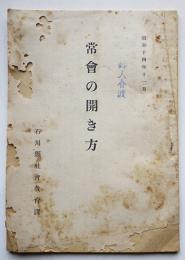 昭和十四年十二月
常會の開き方
石川縣社會教育課